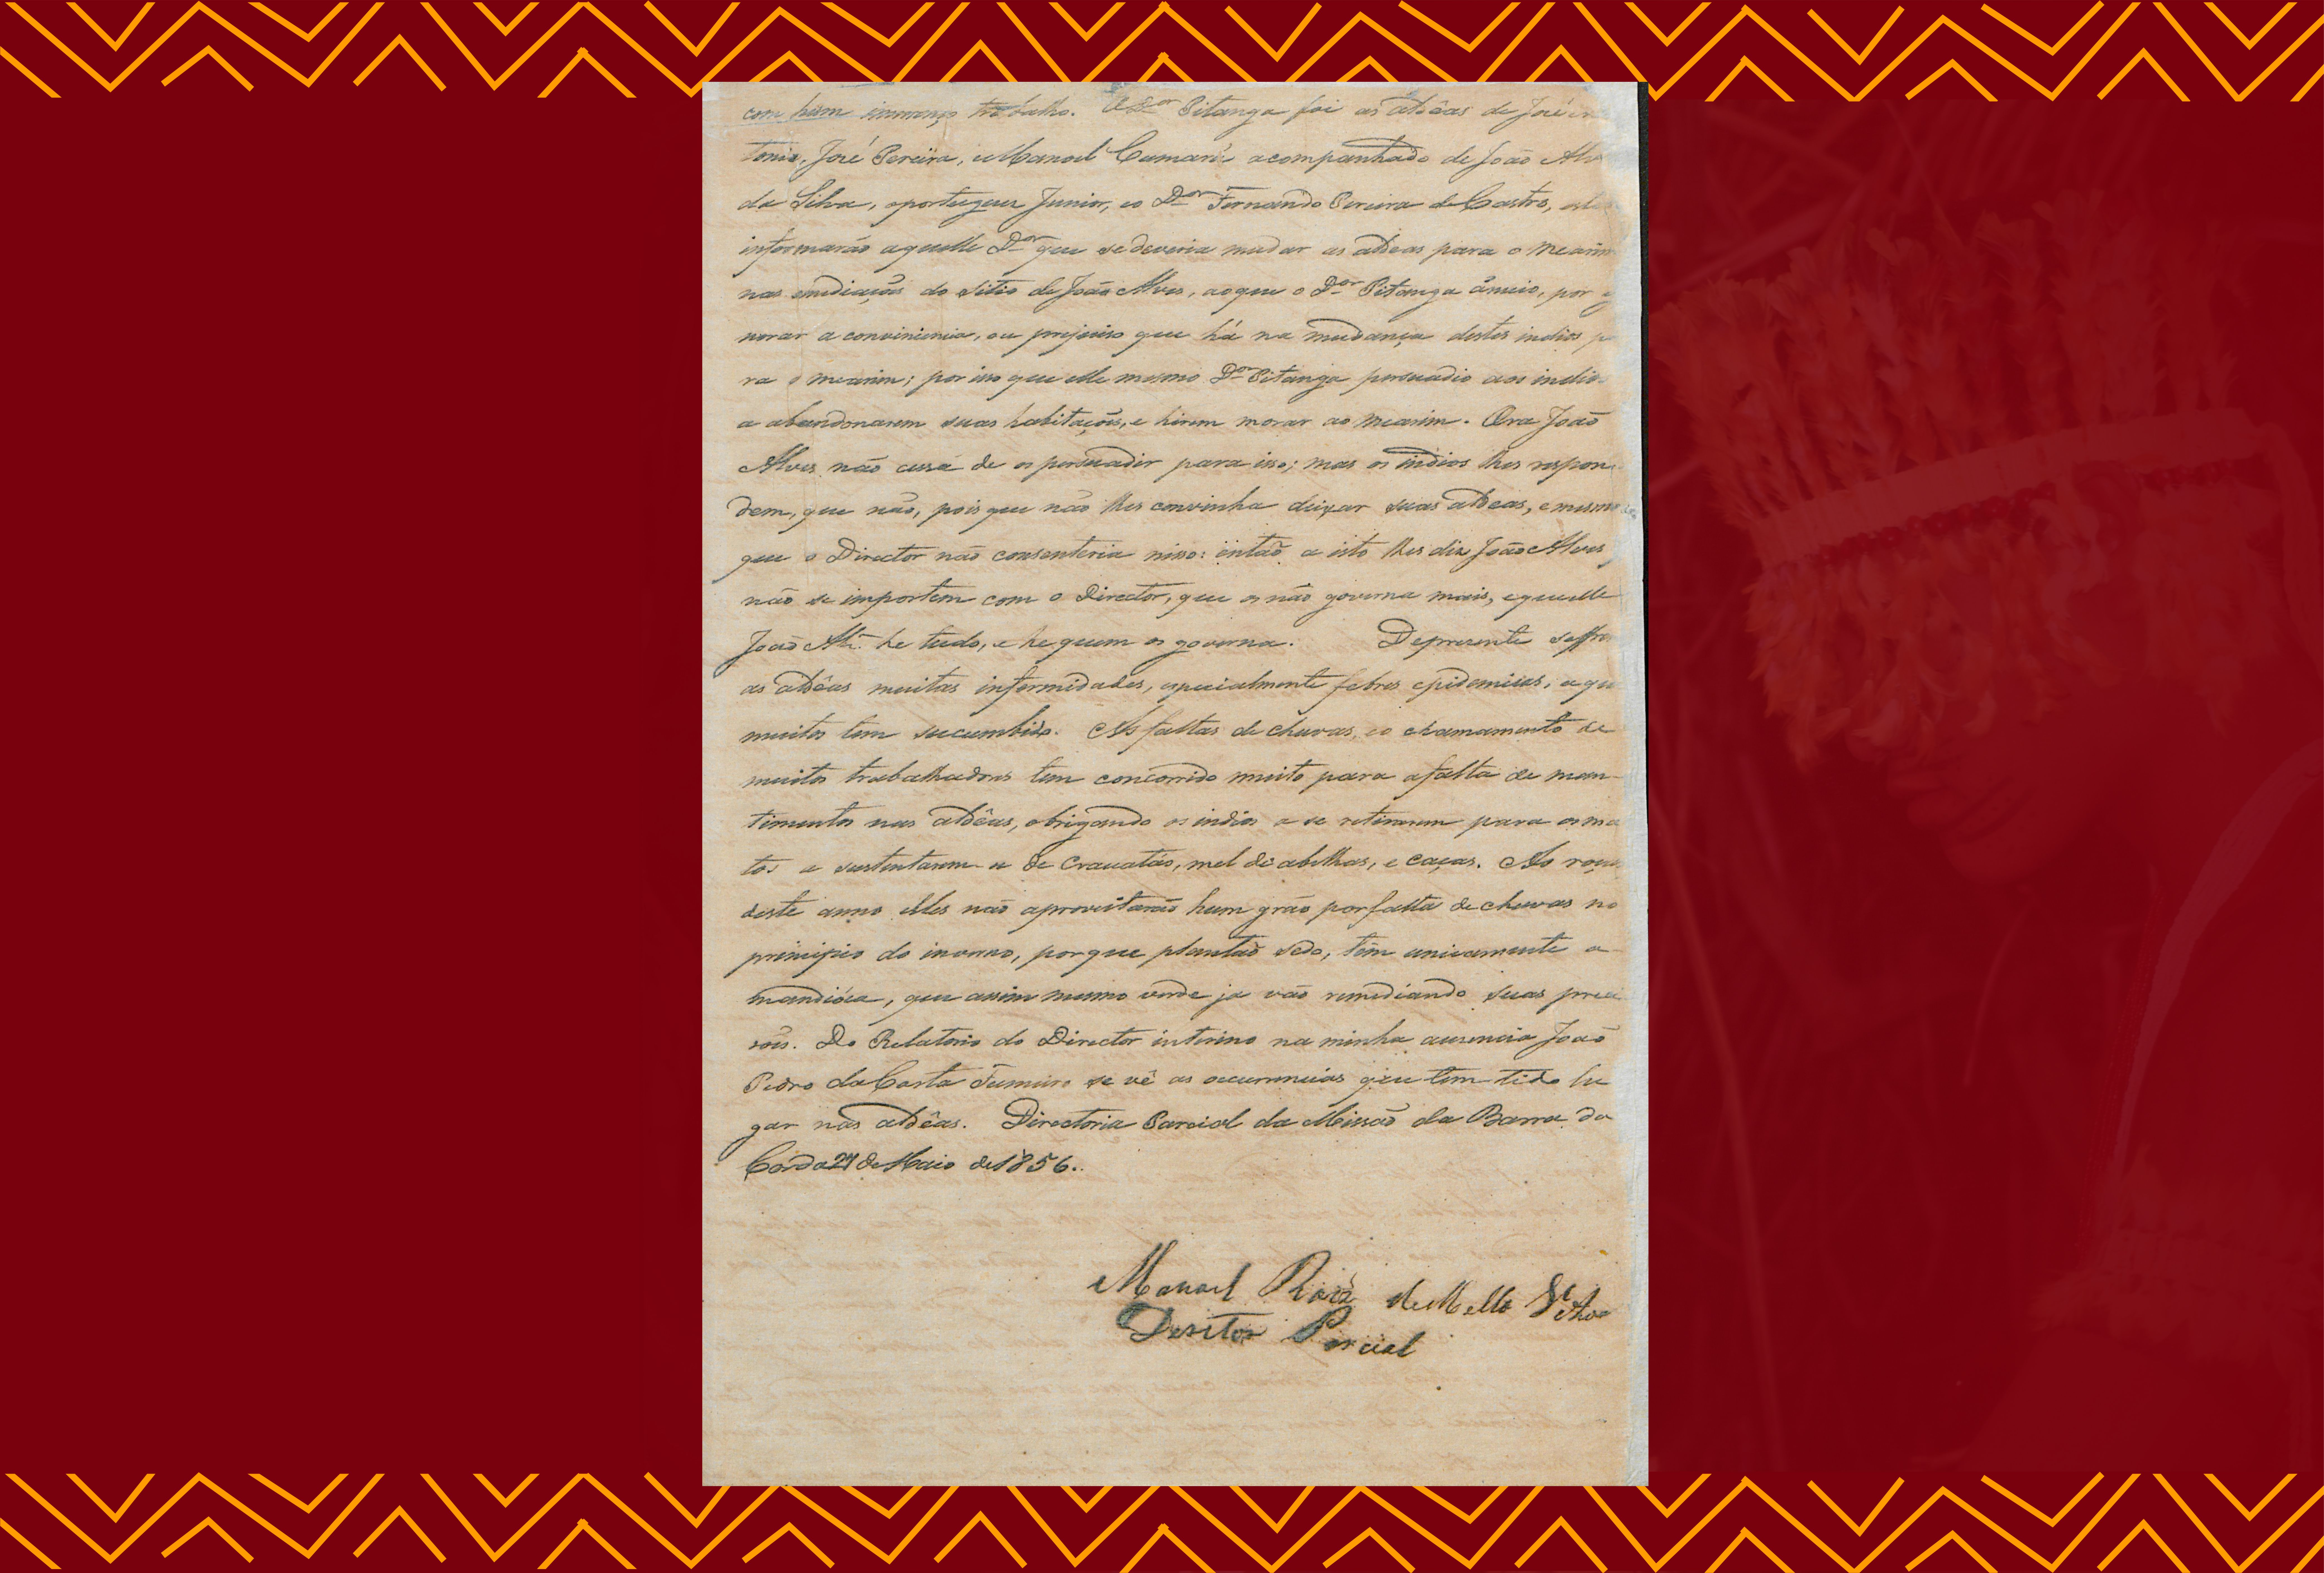 com hum immenço trabalho. O D.or Pitanga foi as aldêas de José
tonio, José Pereira, Manoel Cumarú acompanhado de João Alv
da Silva, oportuguez Junior, eo D.or Fernando Pereira de Castro,
informarão aquelle D.or que sedeveria mudar as aldeas para o Mearim
nas do sitio de João Alves, aoque o D.or Pitanga por
norar a conviniencia, ou prejuiso que há na mudança destes indios p
ra o mearim; por isso que elle mesmo D.or Pitanga persuadio aos indios
a abandonarem suas habitações, e hirem morar ao mearim. Ora João
Alves não cessa de os persuadir para isso; mas os indios lhes respon-
dem, que não, pois que não lhes convinha deixar suas aldeas, e mesmo
que o Director não consenteria nisso: então a isto lhes diz João Alves,
não se importem com o Director, que os não governa mais, equelle
João Alz. he tudo, e he quem os governa. Depresente soffre
as aldêas muitas infermidades, especialmente febres epidemicas, aqu
muitos tem sucumbido. As faltas de chuvas, eo chamamento de
muitos trabalhadores tem concorrido muito para afalta de man-
timentos nas aldêas, obrigando os indios a se retirarem para osma
tos a sustentarem-se de Crauatás, mel de abelhas, e caças. As roças
deste anno elles não aproveitarão hum grão porfalta de chuvas no
principio do inverno, porque plantão sedo, têm unicamente a
mandióca, que assim mesmo verde ja vão remediando suas preci
sões. Do Relatorio do Director interino na minha ausencia João
Pedro da Costa se vê as ocurrencias que tem tido lu
gar nas aldêas. Directoria Parcial da Missão da Barra do
Corda 27 de Maio de 1856.
Manoel Roiz de Mello
Deritor Parcial